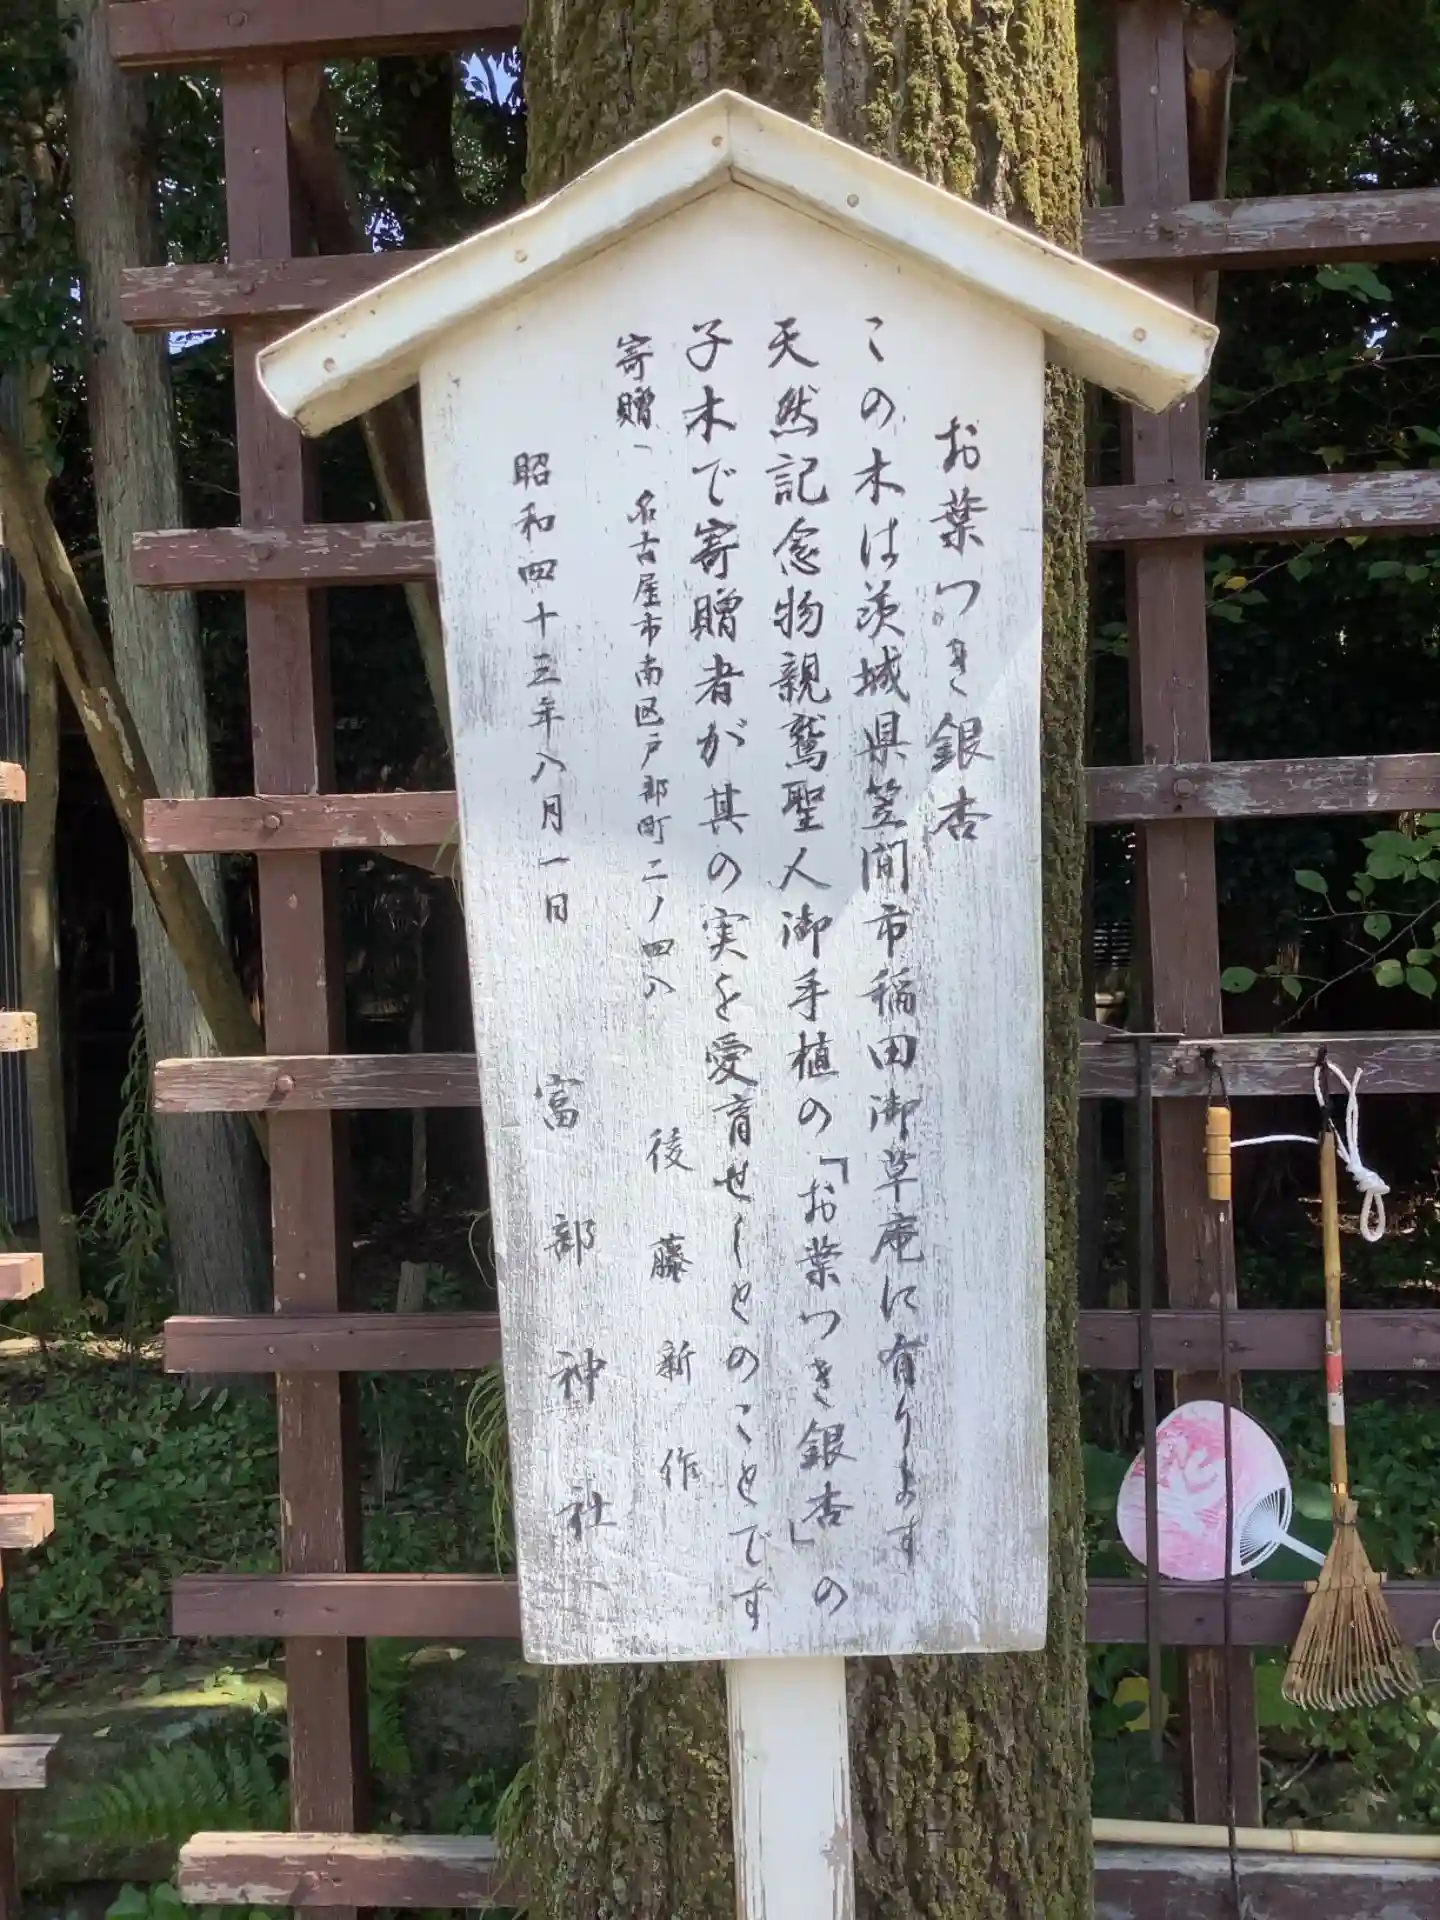 お葉つき銀杏
この木は茨城県笠間市稲田御草庵に有ります
天然記念物親鸞聖人御手植の「お葉つき銀杏」の
子木で寄贈者が其の実を愛育せしとのことです
寄贈、名古屋市南区戸部町二ノ四八 後藤新作
昭和四十三年八月一日 富部神社